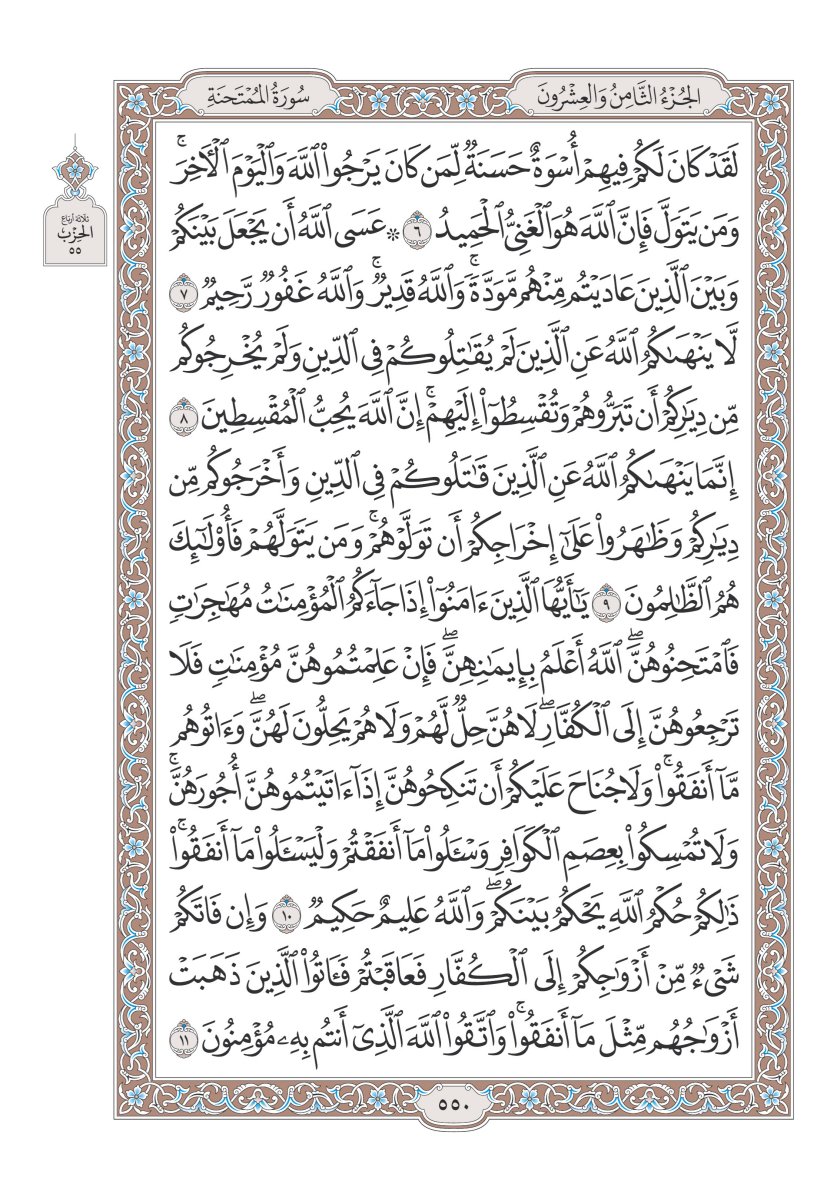 الجُزْءُ الثَّامِنُ وَالعِشْرُونَ
سُورَةُ المُمْتَحنَةِ
لَقَدْ كَانَ لَكُمْ فِيهِمْ أُسْوَةٌ حَسَنَةٌ لِّمَن كَانَ يَرْجُواْ ٱللَّهَ وَٱلْيَوْمَ ٱلْأٓخِرَۚ
وَمَن يَتَوَلَّ فَإِنَّ ٱللَّهَ هُوَ ٱلْغَنِيُّ ٱلْحَمِيدُ ٦ ۞ عَسَى ٱللَّهُ أَن يَجْعَلَ بَيْنَكُمْ
وَبَيْنَ ٱلَّذِينَ عَادَيْتُم مِّنْهُم مَّوَدَّةٗۚ وَٱللَّهُ قَدِيرٞۚ وَٱللَّهُ غَفُورٞ رَّحِيمٞ ٧
لَّا يَنْهَىٰكُمُ ٱللَّهُ عَنِ ٱلَّذِينَ لَمْ يُقَٰتِلُوكُمْ فِي ٱلدِّينِ وَلَمْ يُخْرِجُوكُم
مِّن دِيَٰرِكُمْ أَن تَبَرُّوهُمْ وَتُقْسِطُوٓاْ إِلَيْهِمْۚ إِنَّ ٱللَّهَ يُحِبُّ ٱلْمُقْسِطِينَ ٨
إِنَّمَا يَنْهَىٰكُمُ ٱللَّهُ عَنِ ٱلَّذِينَ قَٰتَلُوكُمْ فِي ٱلدِّينِ وَأَخْرَجُوكُم مِّن
دِيَٰرِكُمْ وَظَٰهَرُواْ عَلَىٰٓ إِخْرَاجِكُمْ أَن تَوَلَّوْهُمْۚ وَمَن يَتَوَلَّهُمْ فَأُوْلَٰٓئِكَ
هُمُ ٱلظَّٰلِمُونَ ٩ يَٰٓأَيُّهَا ٱلَّذِينَ ءَامَنُوٓاْ إِذَا جَآءَكُمُ ٱلْمُؤْمِنَٰتُ مُهَٰجِرَٰتٖ
فَٱمْتَحِنُوهُنَّۖ ٱللَّهُ أَعْلَمُ بِإِيمَٰنِهِنَّۖ فَإِنْ عَلِمْتُمُوهُنَّ مُؤْمِنَٰتٖ فَلَا
تَرْجِعُوهُنَّ إِلَى ٱلْكُفَّارِۖ لَا هُنَّ حِلّٞ لَّهُمْ وَلَا هُمْ يَحِلُّونَ لَهُنَّۖ وَءَاتُوهُم
مَّآ أَنفَقُواْۚ وَلَا جُنَاحَ عَلَيْكُمْ أَن تَنكِحُوهُنَّ إِذَآ ءَاتَيْتُمُوهُنَّ أُجُورَهُنَّۚ
وَلَا تُمْسِكُواْ بِعِصَمِ ٱلْكَوَافِرِ وَسْـَٔلُواْ مَآ أَنفَقْتُمْ وَلْيَسْـَٔلُواْ مَآ أَنفَقُواْۚ
ذَٰلِكُمْ حُكْمُ ٱللَّهِ يَحْكُمُ بَيْنَكُمْۖ وَٱللَّهُ عَلِيمٌ حَكِيمٞ ١٠ وَإِن فَاتَكُمْ
شَيْءٞ مِّنْ أَزْوَٰجِكُمْ إِلَى ٱلْكُفَّارِ فَعَاقَبْتُمْ فَـَٔاتُواْ ٱلَّذِينَ ذَهَبَتْ
أَزْوَٰجُهُم مِّثْلَ مَآ أَنفَقُواْۚ وَٱتَّقُواْ ٱللَّهَ ٱلَّذِيٓ أَنتُم بِهِۦ مُؤْمِنُونَ ١١
ثلاثة أرباع
الحِزْب
٥٥
٥٥٠